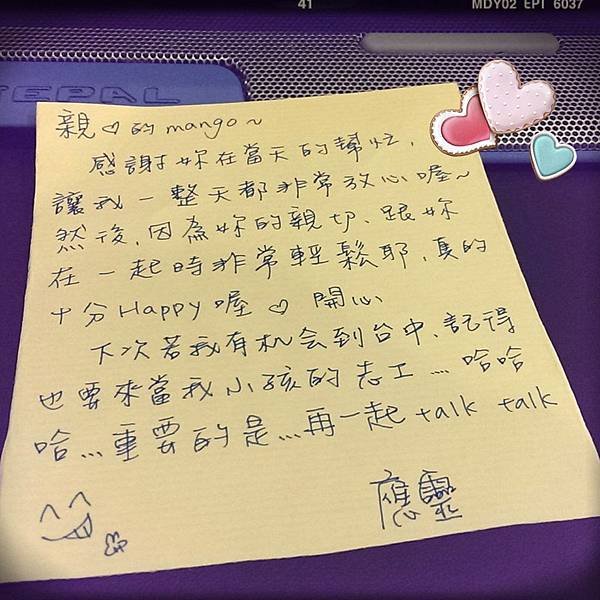 41
MDY02 EPT 6037
TEPAL
親♡的mango~
感謝妳在當天的幫忙,
讓我一整天都非常放心喔~
然後,因為妳的親切、跟妳
在一起時非常輕鬆耶,真的
十分Happy喔♡開心
下次若我有机会到台中、記得
也要來當我小孩的志工...哈哈
哈...重要的是...再一起talk talk
應靈